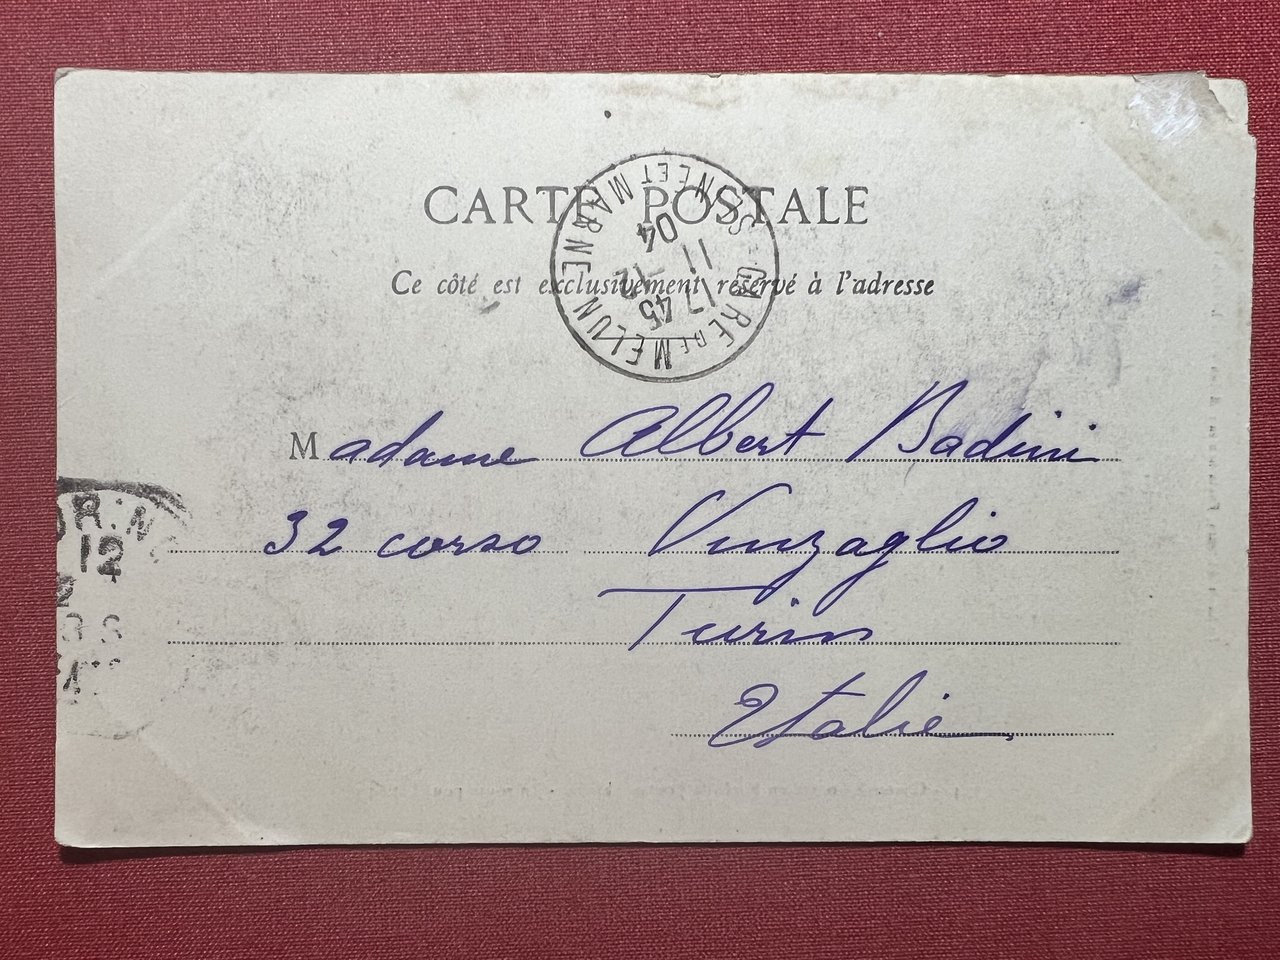 CARTE POSTALE
Ce côté est exclusivement réservé à l'adresse
GARE DE MELUN SNE ET MARNE
17 45
11 -12
04
Madame Albert Badini
32 corso Vinzaglio
Turin
Italie
12